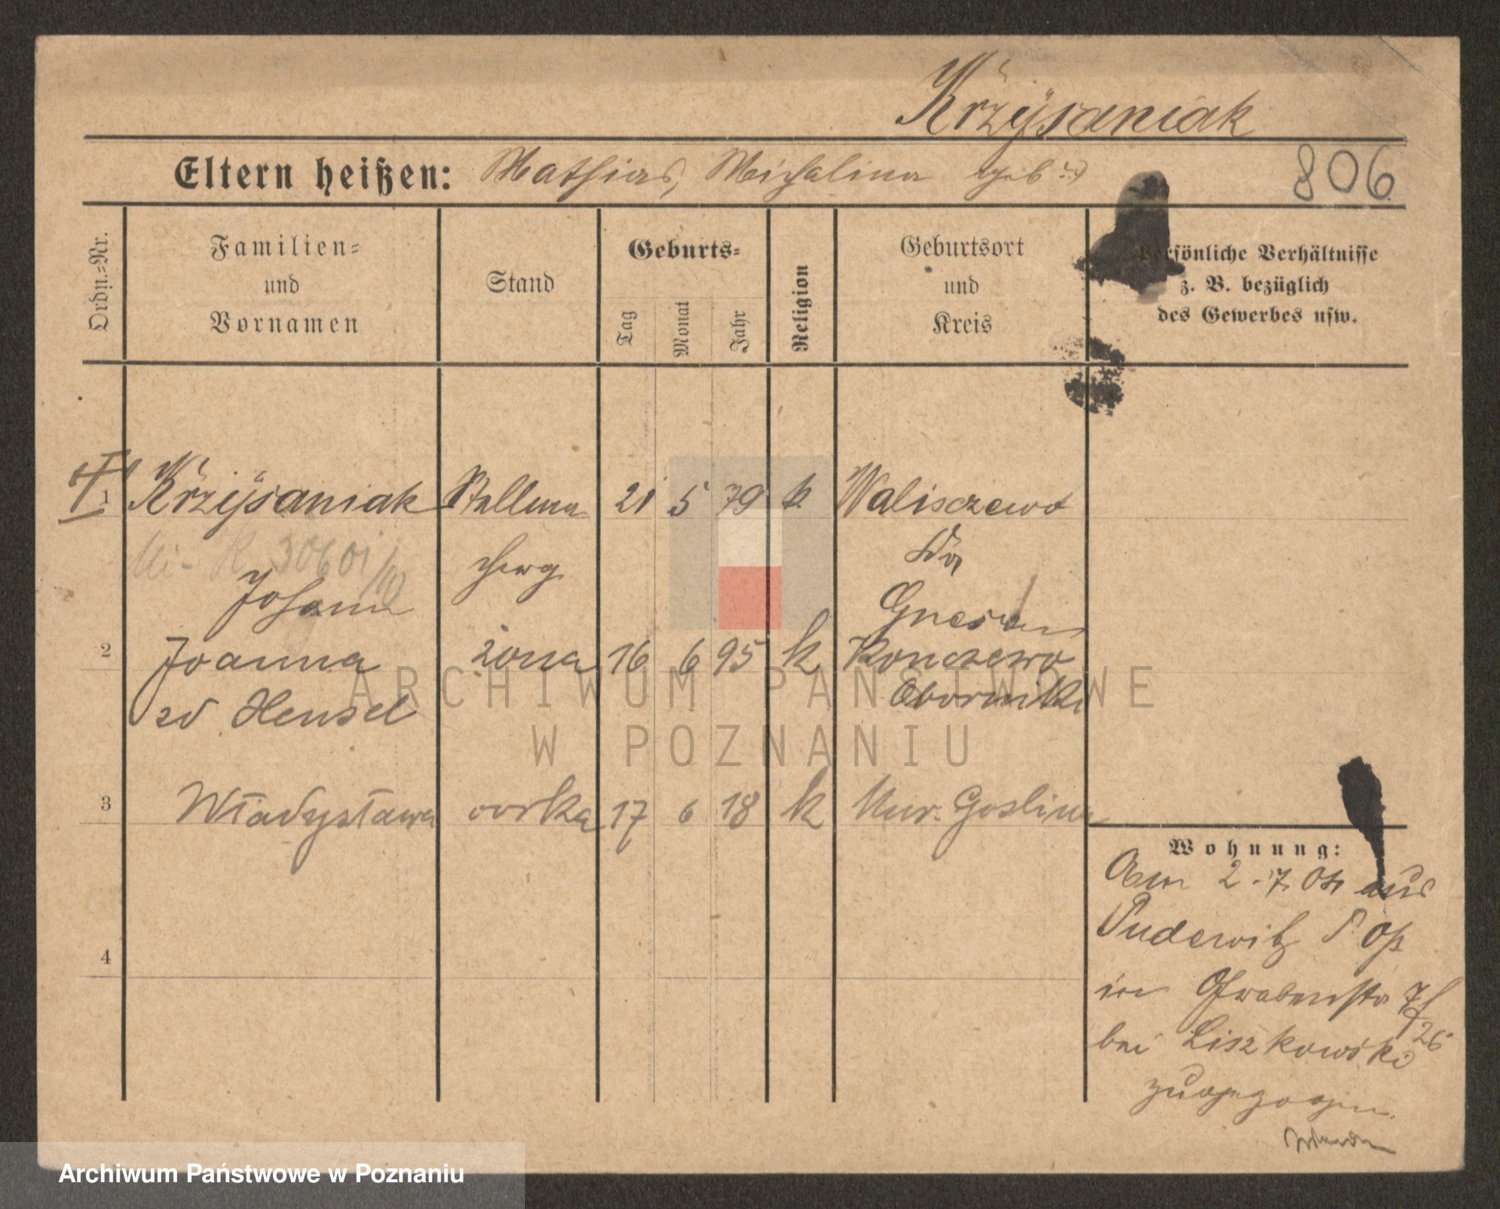 Krzysaniak
Eltern heißen: Mathias, Michalina geb:
806
Ordn.-Nr.
Familien- und Vornamen
Stand
Geburts-
Tag
Monat
Jahr
Religion
Geburtsort und Kreis
Persönliche Verhältnisse
z. B. bezüglich
des Gewerbes usw.
1 Krzysaniak Stellma 21 5 79 k Waliszewo
3060
Johann cherg Gnesen
2 Joanna żona 16 6 95 k Konczewo
zd Hensel Obornik
3 Władysława corka 17 6 18 k Mur. Goslina
4
Wohnung:
Am 2.7.04 aus
Pudewitz
in Grabenstr 7
26
bei Liszkowski
zugezogen
ARCHIWUM PAŃSTWOWE
W POZNANIU
Archiwum Państwowe w Poznaniu